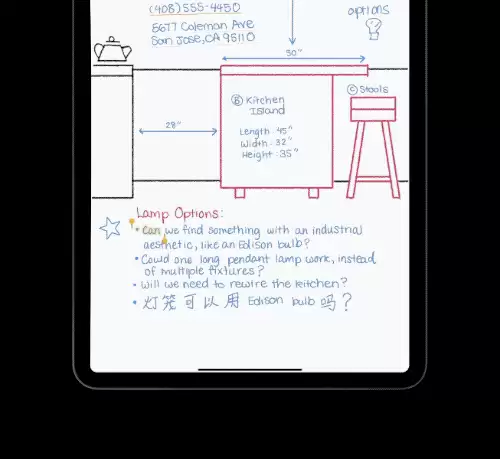 (408) 555-4450
5677 Coleman Ave
San Jose, CA 95110
options
30"
Ⓒ Stools
Ⓑ Kitchen
Island
28"
Length: 45"
Width: 32"
Height: 35"
Lamp Options:
• Can we find something with an industrial
aesthetic, like an Edison bulb?
• Could one long pendant lamp work, instead
of multiple fixtures?
• Will we need to rewire the kitchen?
• 灯笼可以用 Edison bulb 吗?